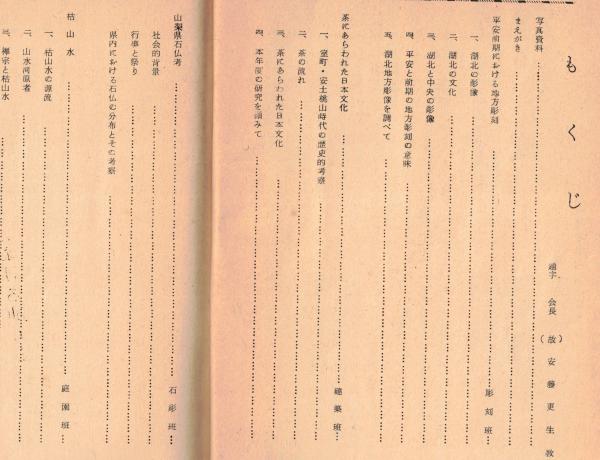 もくじ
題字 会長 (故) 安藤更生教
写真資料
まえがき
平安前期における地方彫刻 彫刻班
一、湖北の彫像
二、湖北の文化
三、湖北と中央の彫像
四、平安と前期の地方彫刻の意味
五、湖北地方彫像を調べて
茶にあらわれた日本文化 建築班
一、室町・安土桃山時代の歴史的考察
二、茶の流れ
三、茶にあらわれた日本文化
四、本年度の研究を顧みて
山梨県石仏考 石彫班
社会的背景
行事と祭り
県内における石仏の分布とその考察
枯山水 庭園班
一、枯山水の源流
二、山水河原者
三、禅宗と枯山水